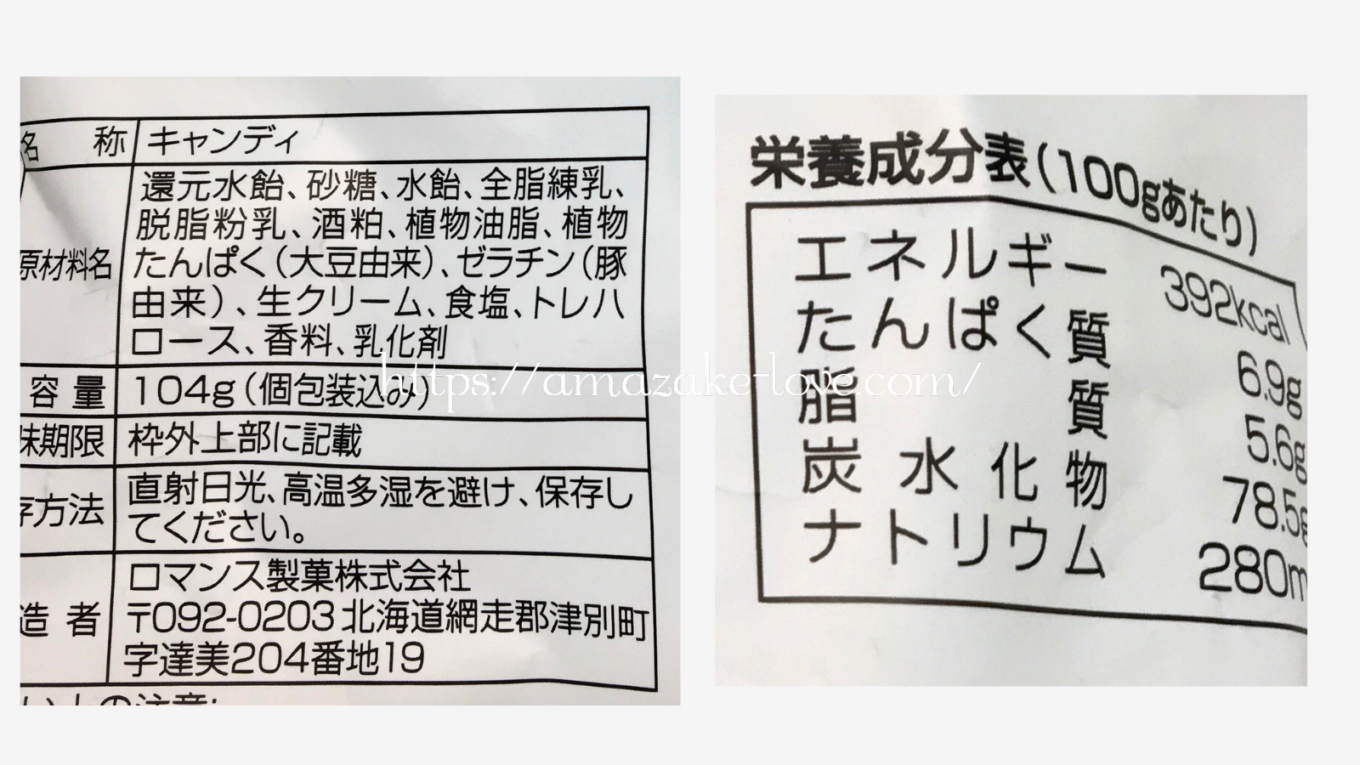 名称 キャンディ
原材料名 還元水飴、砂糖、水飴、全脂練乳、
脱脂粉乳、酒粕、植物油脂、植物
たんぱく(大豆由来)、ゼラチン(豚
由来)、生クリーム、食塩、トレハ
ロース、香料、乳化剤
容量 104g(個包装込み)
味期限 枠外上部に記載
存方法 直射日光、高温多湿を避け、保存し
てください。
造者 ロマンス製菓株式会社
〒092-0203北海道網走郡津別町
字達美204番地19
の注意:
https://amazake-love.com/
栄養成分表(100gあたり)
エネルギー 392kcal
たんぱく質 6.9g
脂質 5.6g
炭水化物 78.5g
ナトリウム 280m